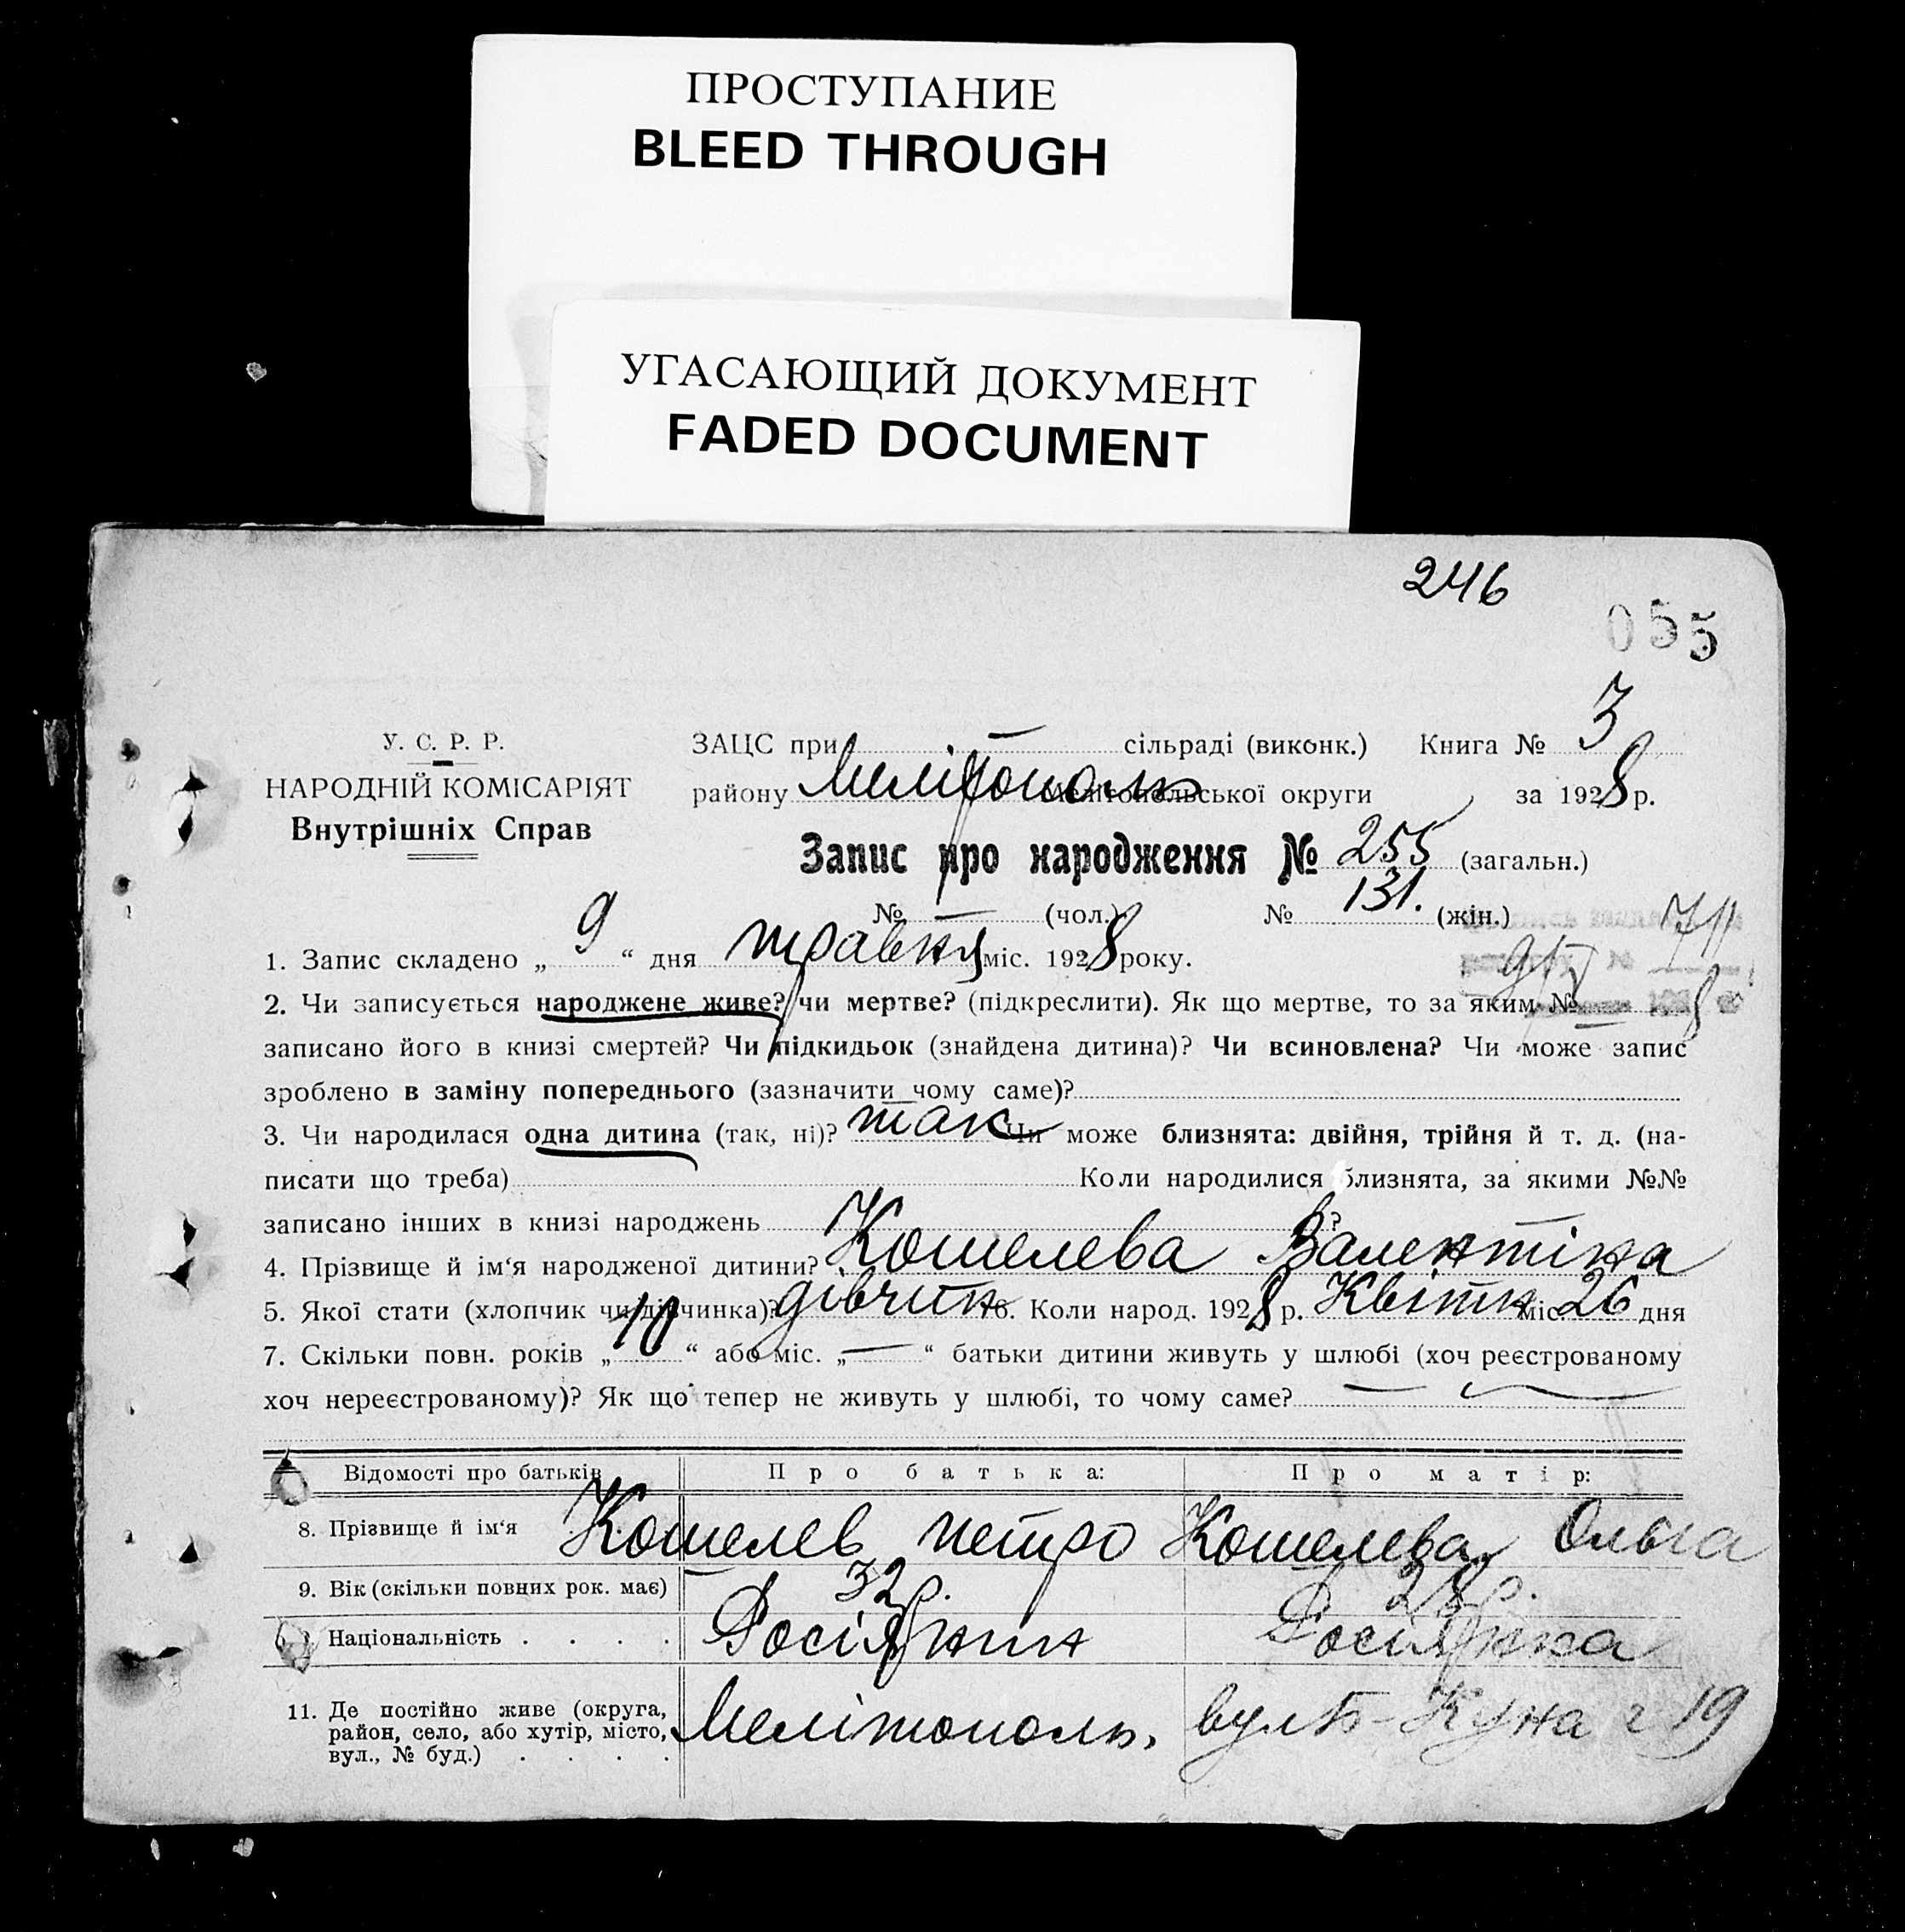 ПРОСТУПАНИЕ
BLEED THROUGH
УГАСАЮЩИЙ ДОКУМЕНТ
FADED DOCUMENT
246
055
У. С. Р. Р.
НАРОДНІЙ КОМІСАРІЯТ
Внутрішніх Справ
ЗАЦС при — сільраді (виконк.) Книга № 3
району Мелітополь Мелітопольської округи за 1928 р.
Запис про народження № 255 (загальн.)
№ — (чол.) № 131. (жін.)
1. Запис складено „ 9 “ дня травня міс. 1928 року.
2. Чи записується народжене живе? чи мертве? (підкреслити). Як що мертве, то за яким №
записано його в книзі смертей? Чи підкидьок (знайдена дитина)? Чи всиновлена? Чи може запис
зроблено в заміну попереднього (зазначити чому саме)?
3. Чи народилася одна дитина (так, ні)? так Чи може близнята: двійня, трійня й т. д. (на-
писати що треба) Коли народилися близнята, за якими №№
записано інших в книзі народжень ?
4. Прізвище й ім‘я народженої дитини? Кошелева Валентіна
5. Якої стати (хлопчик чи дівчинка)? дівчин 6. Коли народ. 1928 р. Квітн міс. 26 дня
7. Скільки повн. років „ 10 “ або міс. „ — “ батьки дитини живуть у шлюбі (хоч реєстрованому
хоч нереєстрованому)? Як що тепер не живуть у шлюбі, то чому саме? —
Відомості про батьків Про батька: Про матір:
8. Прізвище й ім‘я Кошелев Петро Кошелева Ольга
9. Вік (скільки повних рок. має) 32 р. 28 р.
Національність . . . . Росіянин Росіянка
11. Де постійно живе (округа,
район, село, або хутір, місто,
вул., № буд.) . . . . Мелітополь, вул Б-Куна 19